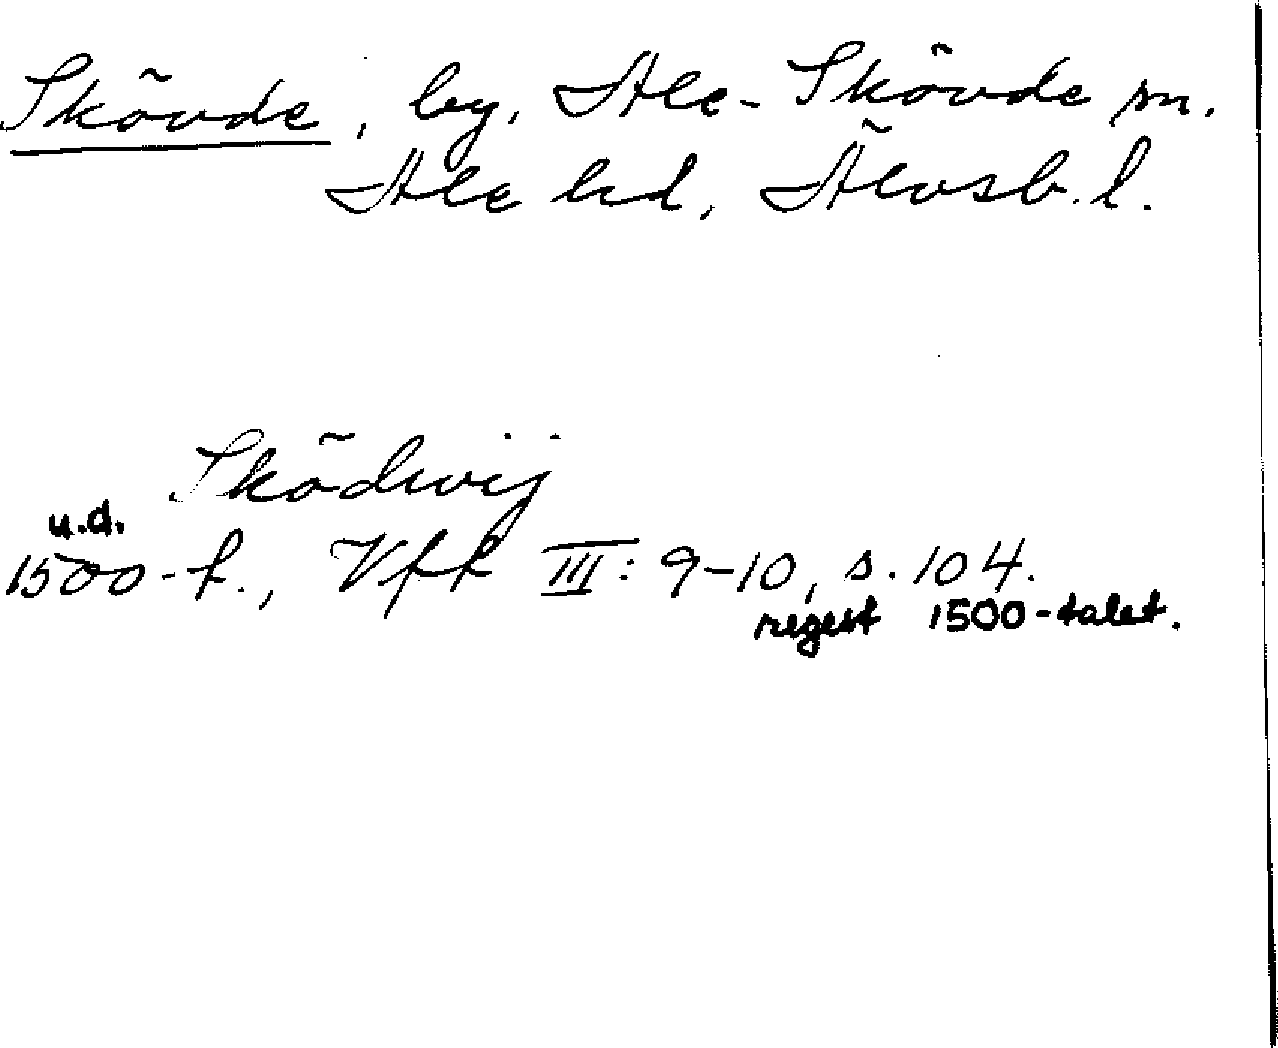 Skövde, by, Ale-Skövde sn.
Ale hd, Älvsb. l.
Sködwij
u.d.
1500-t., Vfk III: 9-10, s. 104.
regest 1500-talet.